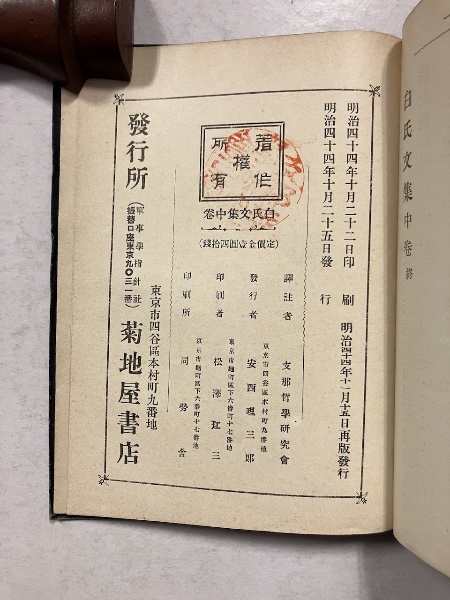 白氏文集中卷終
明治四十四年十月二十二日印刷
明治四十四年十月二十五日發行
明治四十四年十一月十五日再版發行
著作權所有
白氏文集中卷
(定價金壹圓四拾錢)
譯註者 支那哲學研究會
東京市四谷區本村町九番地
發行者 安西理三郎
東京市麹町區下六番町十七番地
印刷者 松澤玒三
東京市麹町區下六番町十七番地
印刷所 同勞舍
東京市四谷區本村町九番地
發行所 (軍事學指針社 振替口座東京九〇三一番) 菊地屋書店